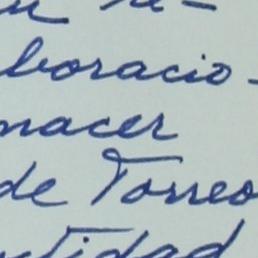 re-
boracio-
nacer
de Torreo
tidad